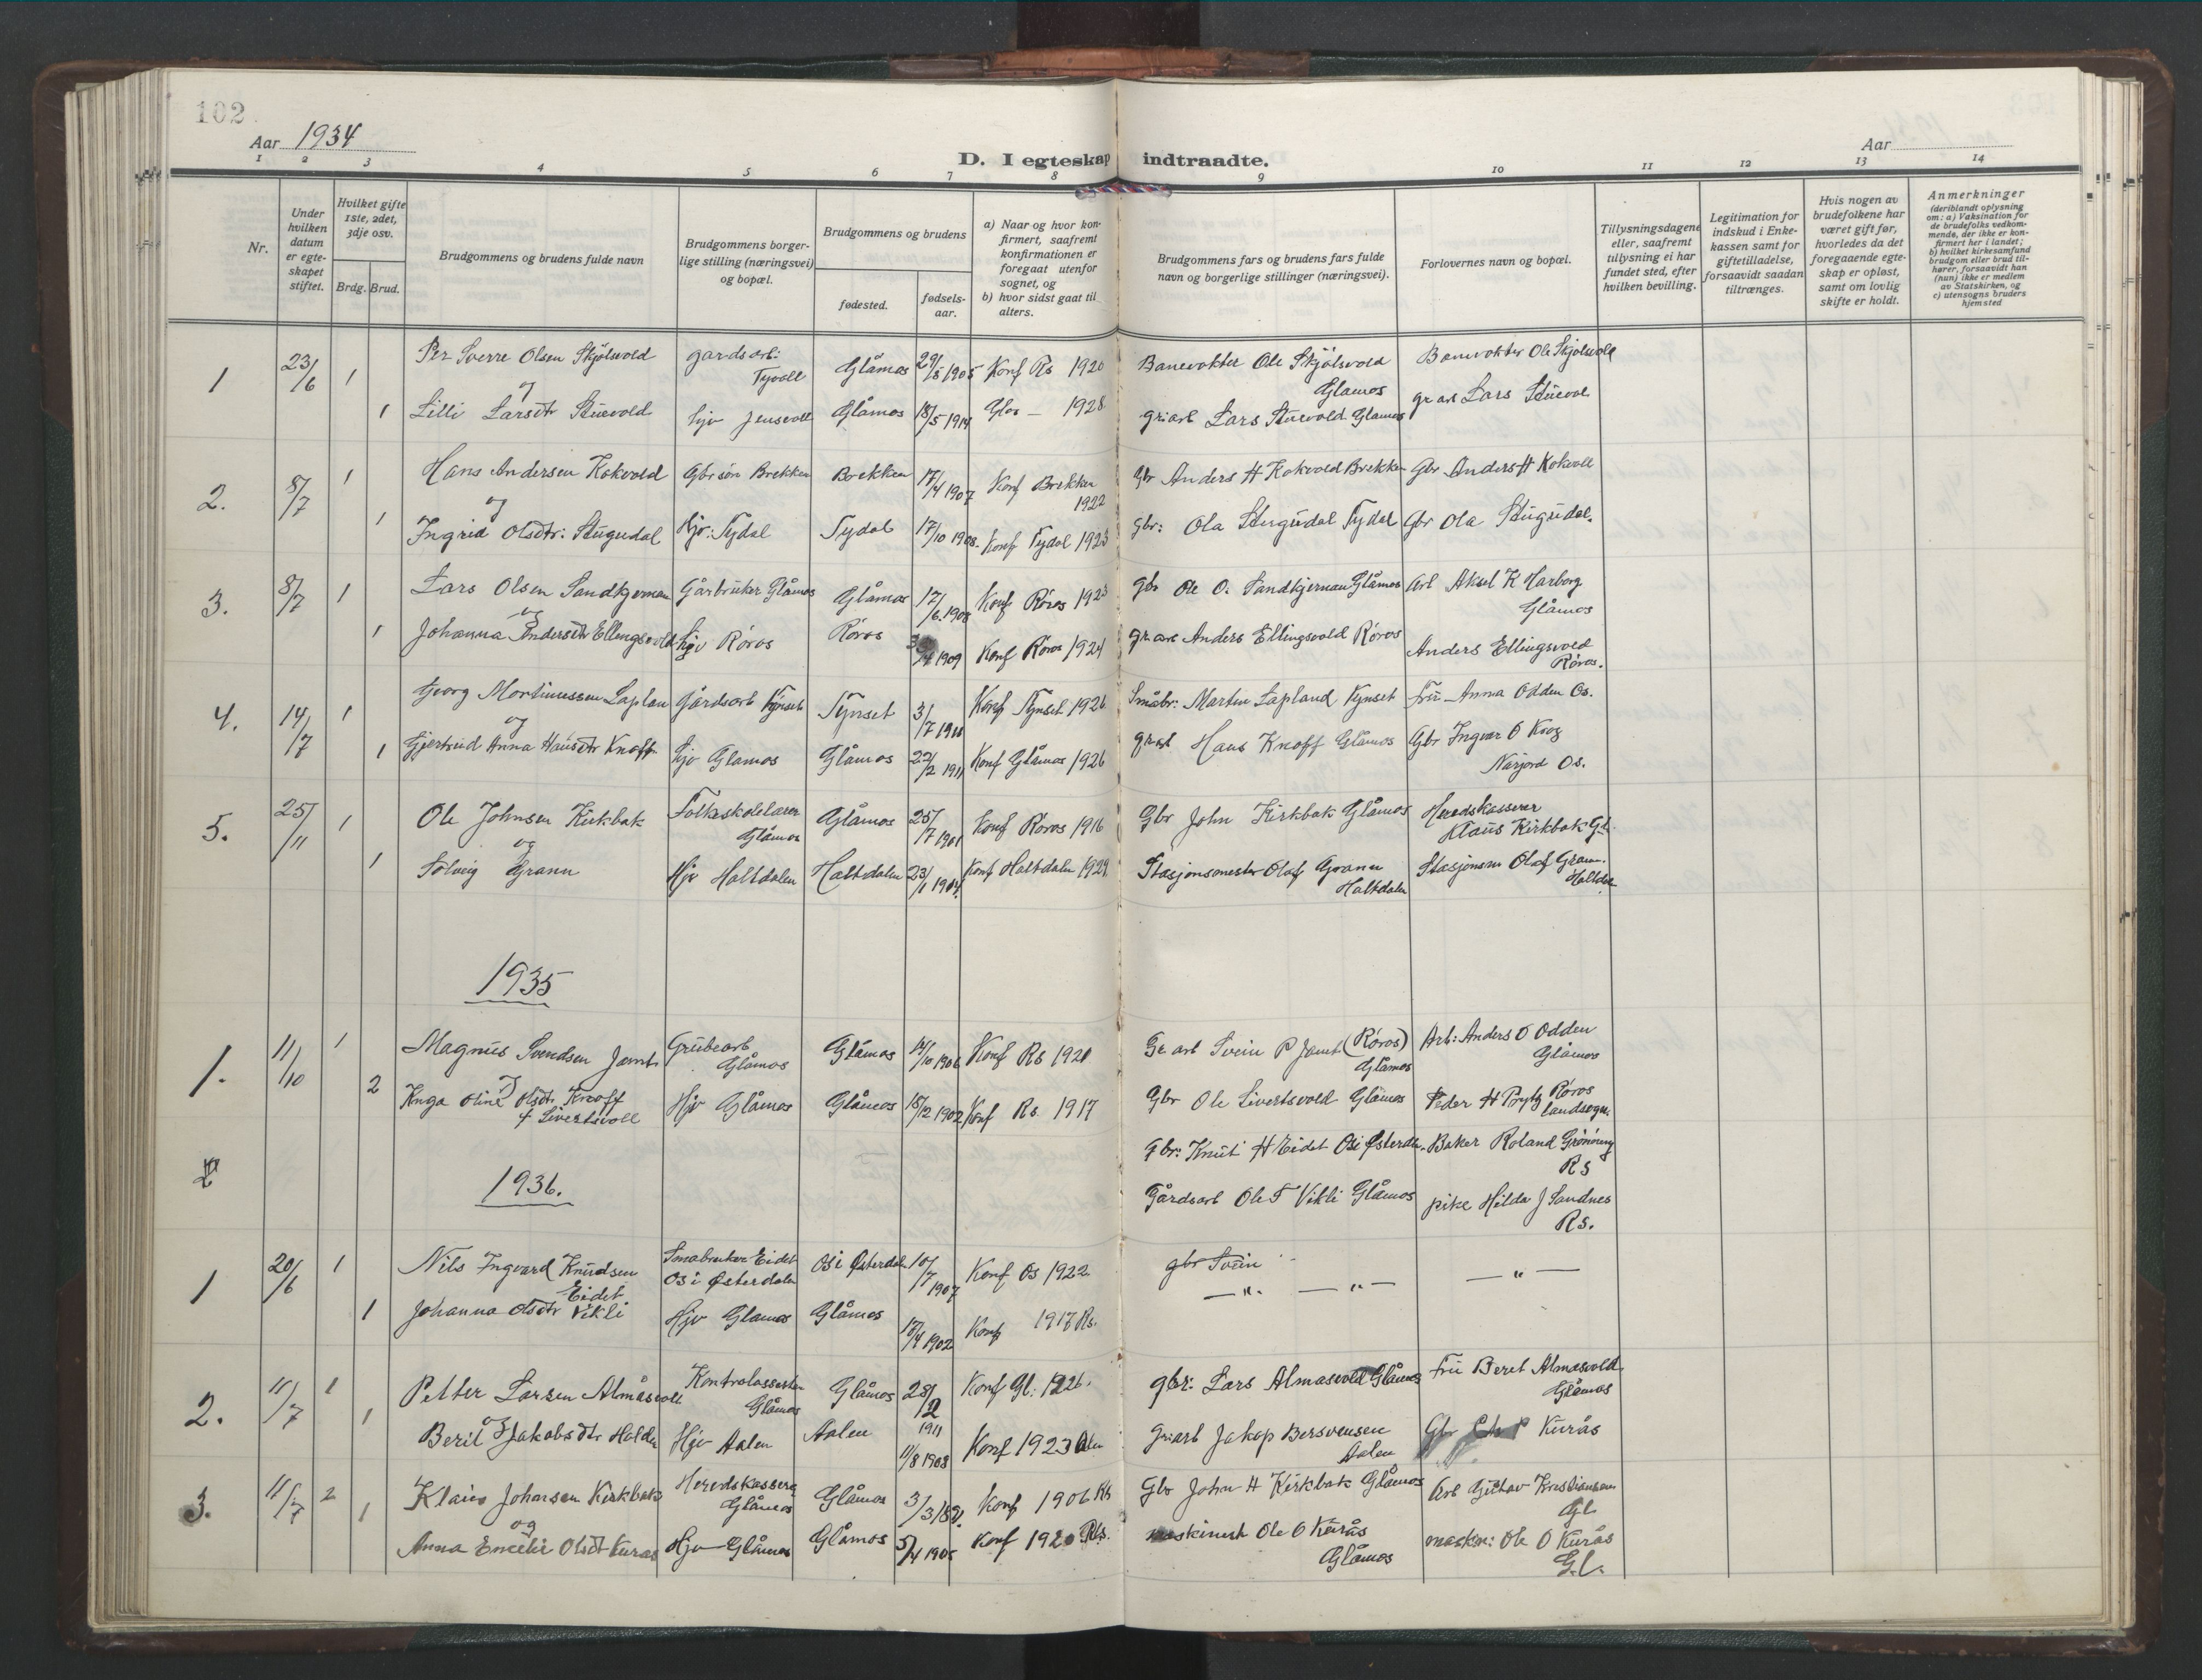 102
Aar 1934
D. I egteskap indtraadte.
Aar
1 2 3 4 5 6 7 8 9 10 11 12 13 14
Nr.
Under hvilken datum er egteskapet stiftet.
Hvilket gifte 1ste, 2det, 3dje osv.
Brdg. Brud.
Brudgommens og brudens fulde navn
Brudgommens borgerlige stilling (næringsvei) og bopæl.
Brudgommens og brudens
fødested.
fødselsaar.
a) Naar og hvor konfirmert, saafremt konfirmationen er foregaat utenfor sognet, og
b) hvor sidst gaat til alters.
Brudgommens fars og brudens fars fulde navn og borgerlige stillinger (næringsvei).
Forlovernes navn og bopæl.
Tillysningsdagene eller, saafremt tillysning ei har fundet sted, efter hvilken bevilling.
Legitimation for indskud i Enkekassen samt for giftetilladelse, forsaavidt saadan tiltrænges.
Hvis nogen av brudefolkene har været gift før, hvorledes da det foregaaende egteskap er opløst, samt om lovlig skifte er holdt.
Anmerkninger
(deriblandt oplysning om: a) Vaksination for de brudefolks vedkommende, der ikke er konfirmert her i landet; b) hvilket kirkesamfund brudgom eller brud tilhører, forsaavidt han (hun) ikke er medlem av Statskirken, og c) utensogns bruders hjemsted
1 23/6 1 Per Sverre Olsen Skjølsvold gardsarb: Tyvoll Glåmos 29/8 1905 Konf Rs 1920 Banevokter Ole Skjølsvold Glamos Banevokter Ole Skjolsvold
og
1 Lilli Larsdtr Stuevold hjv Jensvoll Glåmos 18/5 1914 Glos — 1928 gr:arb Lars Stuevold Glamos gr arb Lars Stuevol
2. 8/7 1 Hans Andersen Kokvold Gbr søn Brekken Brekken 17/4 1907 Konf Brekken 1922 Gbr Anders H Kokvold Brekken Gbr Anders H Kokvoll
og
1 Ingrid Olsdtr: Stugudal Hjv: Tydal Tydal 17/10 1908. Konf Tydal 1923 Gbr: Ola Stugudal Tydal Gbr Ola Stugudal.
3. 8/7 1 Lars Olsen Sandkjernan Gårbruker Glåmos Glåmos 17/6 1908 Konf Røros 1923 Gbr Ole O. Sandkjernan Glåmos Arb Aksel K Harborg Glåmos
og
1 Johanna Andersdtr Ellingsvold hjv Røros Røros 1909 Konf Røros 1924 gr.arb Anders Ellingsvold Røros Anders Ellingsvold Røros.
4. 14/7 1 Georg Martinussen Laplan Gårdsarb Tynset Tynset 3/7 Konf Tynset 1926 Småbr: Martin Lapland Tynset Fru Anna Odden Os.
og
1 Gjertrud Anna Hansdtr Knoff. hjv Glamos Glåmos 22/2 1911 Konf Glåmos 1926 gr.arb Hans Knoff Glåmos Gbr Ingvar O Krog Narjord Os.
5. 25/11 1 Ole Johnsen Kirkbak Folkeskolelærer Glåmos Glåmos 25/7 1901 Konf Røros 1916 Gbr John Kirkbak Glåmos Heredskasserer Klaus Kirkbak Gl.
og
1 Solveig Grann Hjv Haltdalen Haltdalen 23/ 1904. Konf Haltdalen Stasjonsmester Olaf Grann Haltdalen Stasjonsm Olaf Grann. Haltdal
1935
1. 11/10 1 Magnus Svendsen Jamt. Grubearb Glåmos Glåmos 14/10 1906 Konf Rs 1921 Gr arb Svein P Jamt (Røros) Glåmos Arb: Anders O Odden Glåmos
og
2 Inga Oline Olsdtr Knoff f Sivertsvoll Hjv Glåmos Glåmos 18/12 1902 Konf Rs. 1917 Gbr Ole Sivertsvold Glåmos Peder H Prytz Røros landsogn
2
Gbr: Knut H Eidet Os i Østerdn. Baker Roland Grönning Rs
1936.
Gårdsarb Ole T Vikli Glåmos pike Hilda J Sandnes Rs.
1 20/6 1 Nils Ingvard Knudsen Eidet Smabruker Eidet Os i Østerdalen Os i Østerdalen 10/7 1907 Konf Os 1922 gbr Svein
— " — — " — — " —
1 Johanna Olsdtr Vikli Hjv Glamos Glåmos 18/4 1902 Konf 1917 Rs.
2. 11/7 1 Petter Larsen Almåsvoll Kontrolassisten Glåmos Glåmos 23/12 1911 Konf Gl: 1926. gbr: Lars Almasvold Glåmos Fru Beret Almasvold Glåmos
og
1 Berit Jakobsdtr Holden Hjv Aalen Aalen 11/8 1908 Konf 1923 Aalen Gr:arb Jakop Bersvensen Aalen Gbr P Kurås
3. 11/7 2 Klaus Johnsen Kirkbak Heredskasserer Glåmos Glåmos 3/3 Konf 1906 Rs Gbr John H Kirkbak Glåmos Arb Gustav Kristiansen Gl.
og
1 Anna Emelie Olsdt Kuras Hjv Glåmos Glåmos 5/4 1905 Konf 1920 Rs. maskinist Ole O Kurås Glåmos maskin: Ole O Kurås Gl.